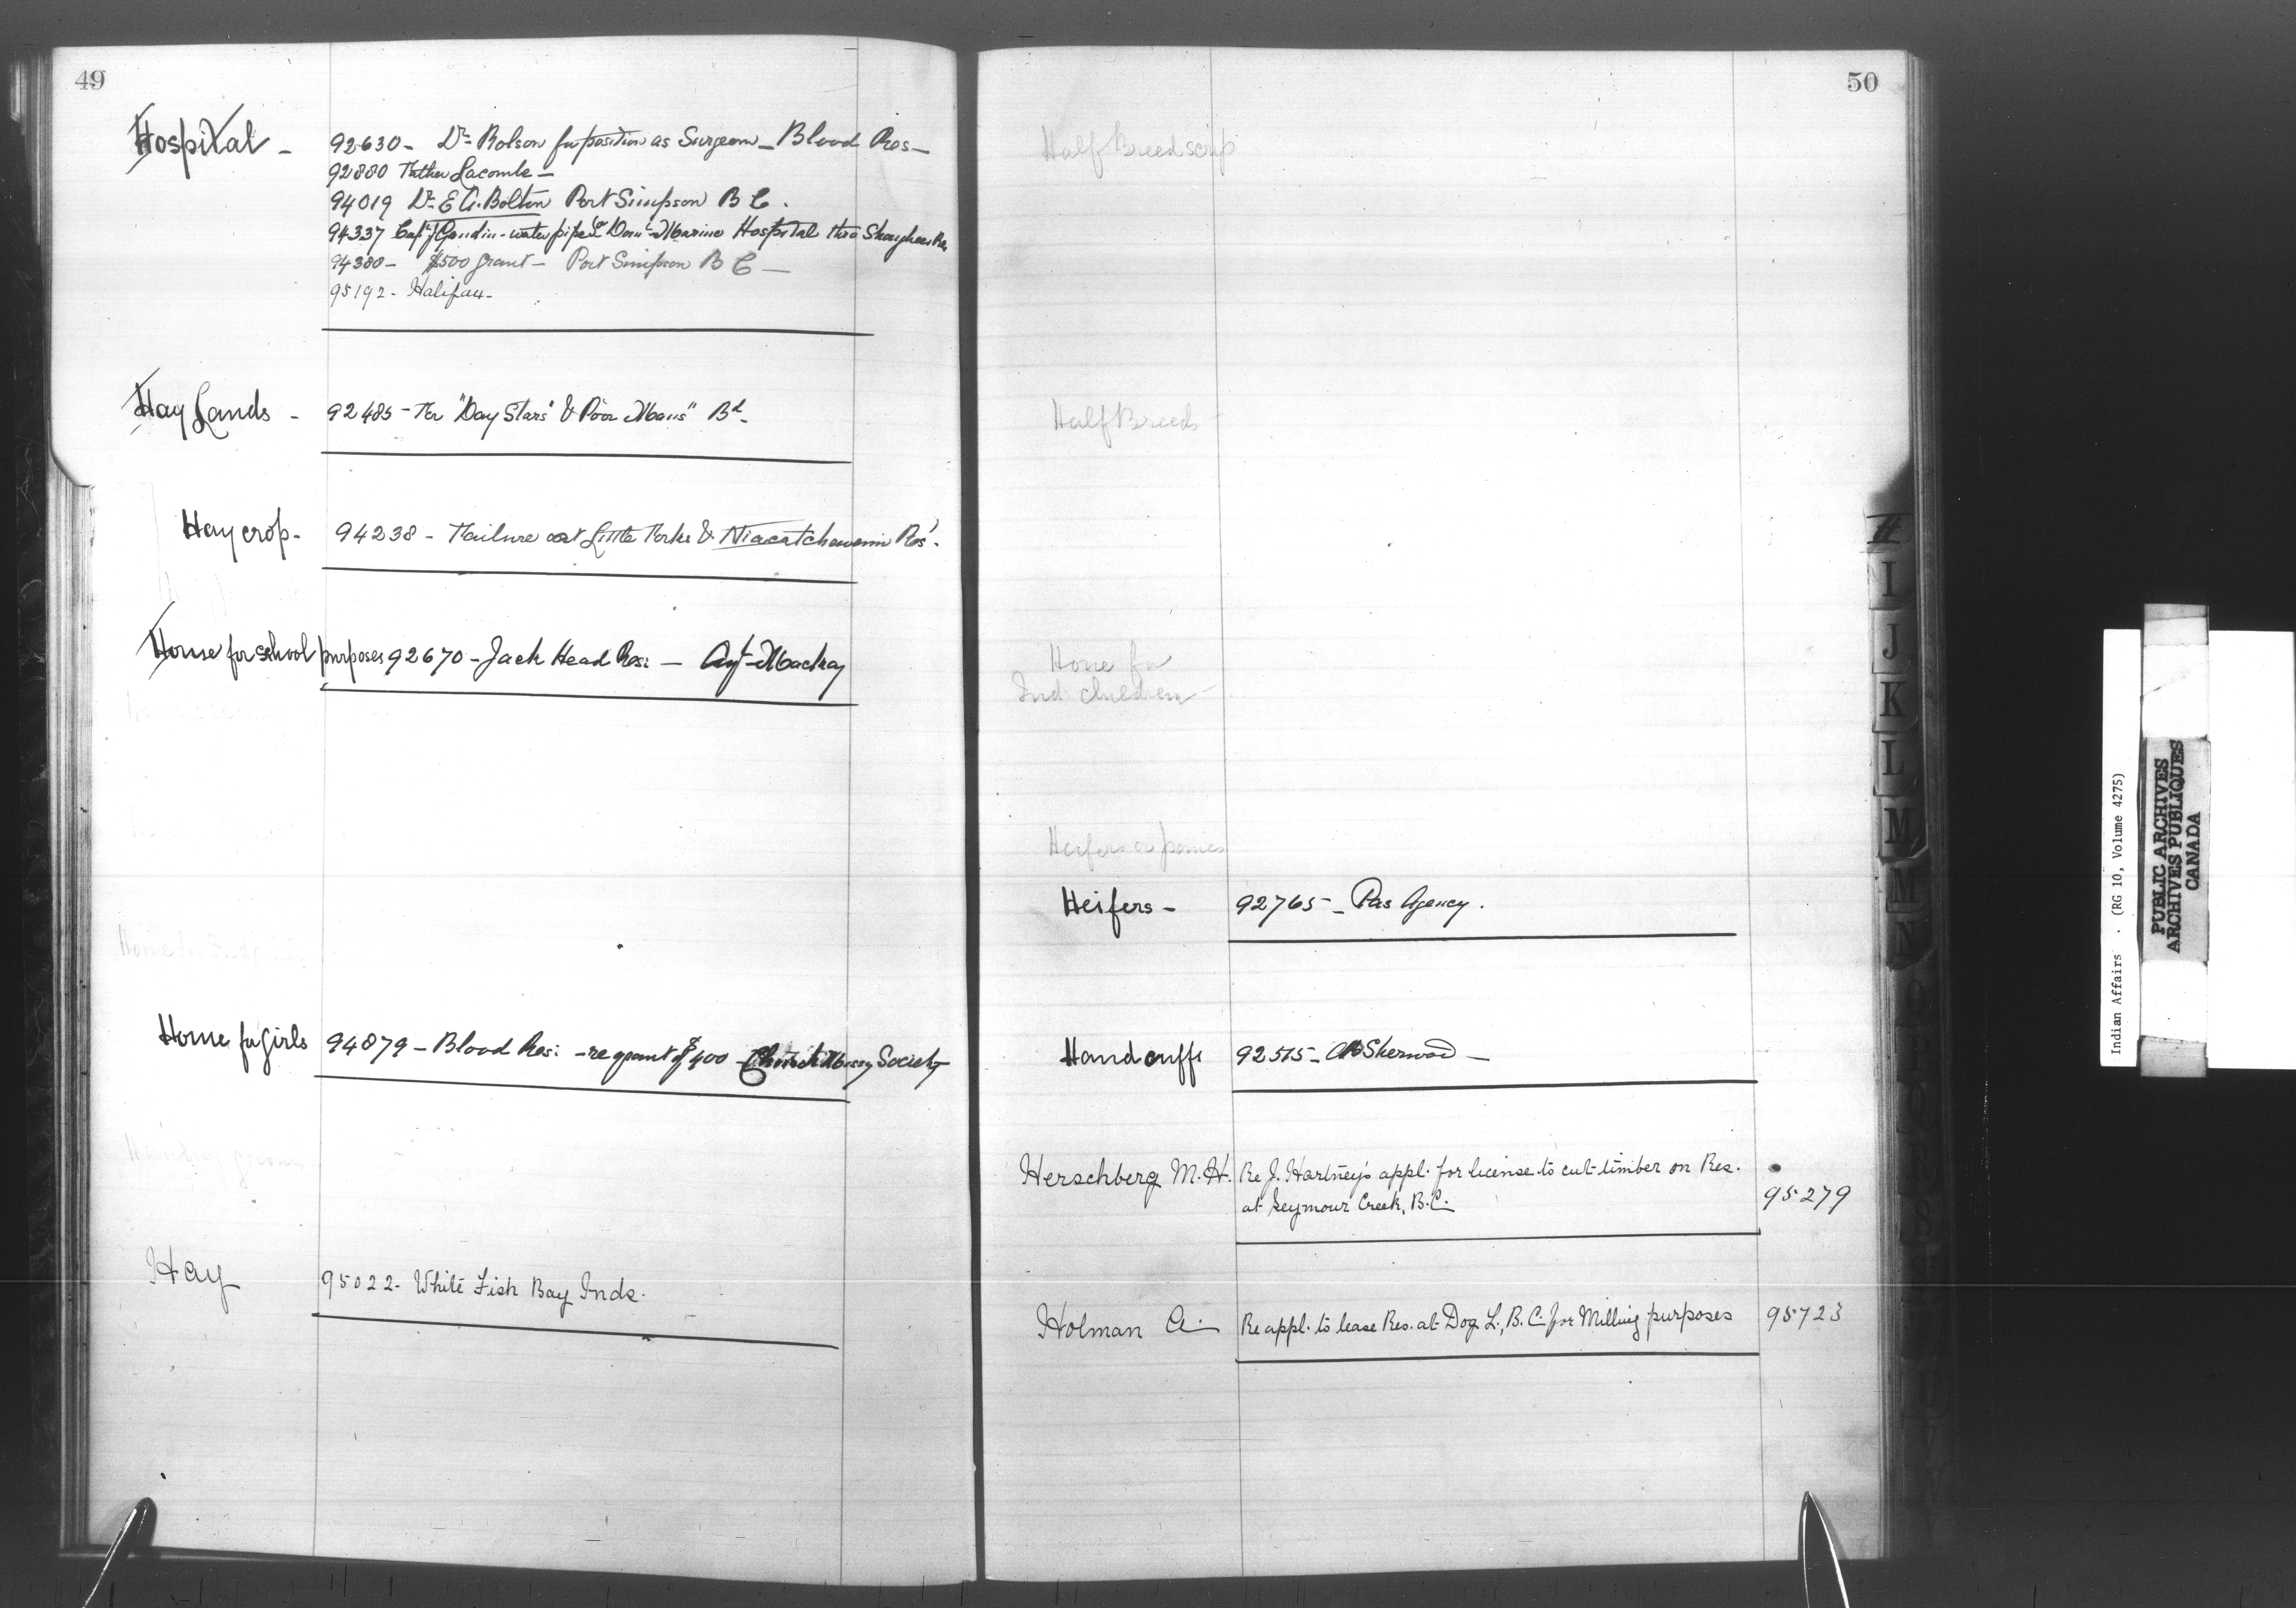 49
Hospital -
92630 - Dr Rolson for position as Surgeon - Blood Res -
92880 Father Lacombe -
94019 Dr. E A. Bolton Port Simpson B C.
94337 Capt J Gaudin - water pipe Dom Marine Hospital thro Songhees Res
94380 - $500 grant - Port Simpson B C -
95192 - Halifax -
Hay Lands - 92485 - For "Day Stars" & Poor Mans" Bd -
Hay crop - 94238 - Failure at Little Forks & Niacatchewenin Res'.
House for school purposes 92670 - Jack Head Res: - Agt Mackay
Home for Girls 94879 - Blood Res: - re grant of $400 - Church Missy Society
Hay 95022 - White Fish Bay Inds.
50
Half Breed scrip
Half Breeds
Home for
Ind. children -
Heifers or ponies
Heifers - 92765 - Pas Agency.
Handcuffs 92515 - Sherwood -
Herschberg M. H. Re J. Hartney's appl. for license to cut timber on Res.
at Seymour Creek, B.C. 95279
Holman A. Re appl. to lease Res. at Dog L., B.C. for Milling purposes 95723
H
I
J
K
L
M
M
N
O
P
Q
R
S
Indian Affairs . (RG 10, Volume 4275)
PUBLIC ARCHIVES
ARCHIVES PUBLIQUES
CANADA